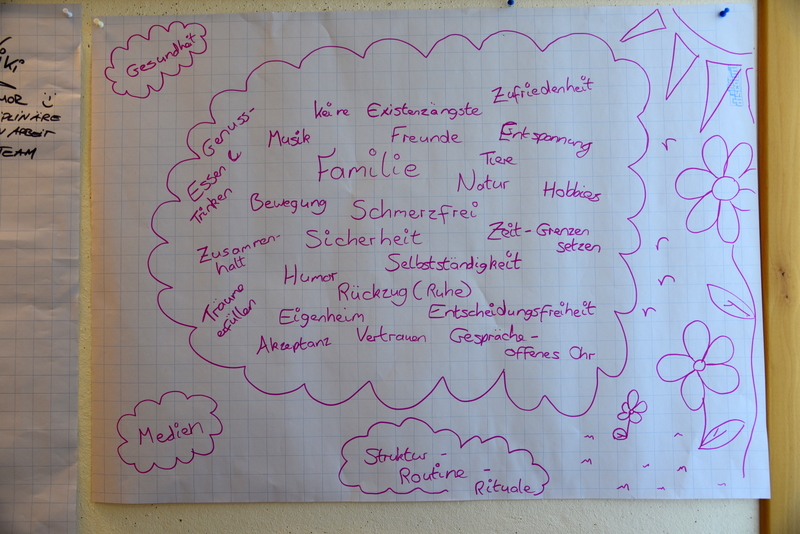 Gesundheit
keine Existenzängste
Zufriedenheit
Genuss-
Essen &
Trinken
Musik
Freunde
Entspannung
Familie
Tiere
Natur
Hobbies
Bewegung
Schmerzfrei
Zusammen-
halt
Sicherheit
Zeit-Grenzen
setzen
Humor
Selbstständigkeit
Träume
erfüllen
Rückzug (Ruhe)
Eigenheim
Entscheidungsfreiheit
Akzeptanz
Vertrauen
Gespräche-
offenes Ohr
Medien
Struktur -
Routine -
Rituale
ARBEIT
TEAM